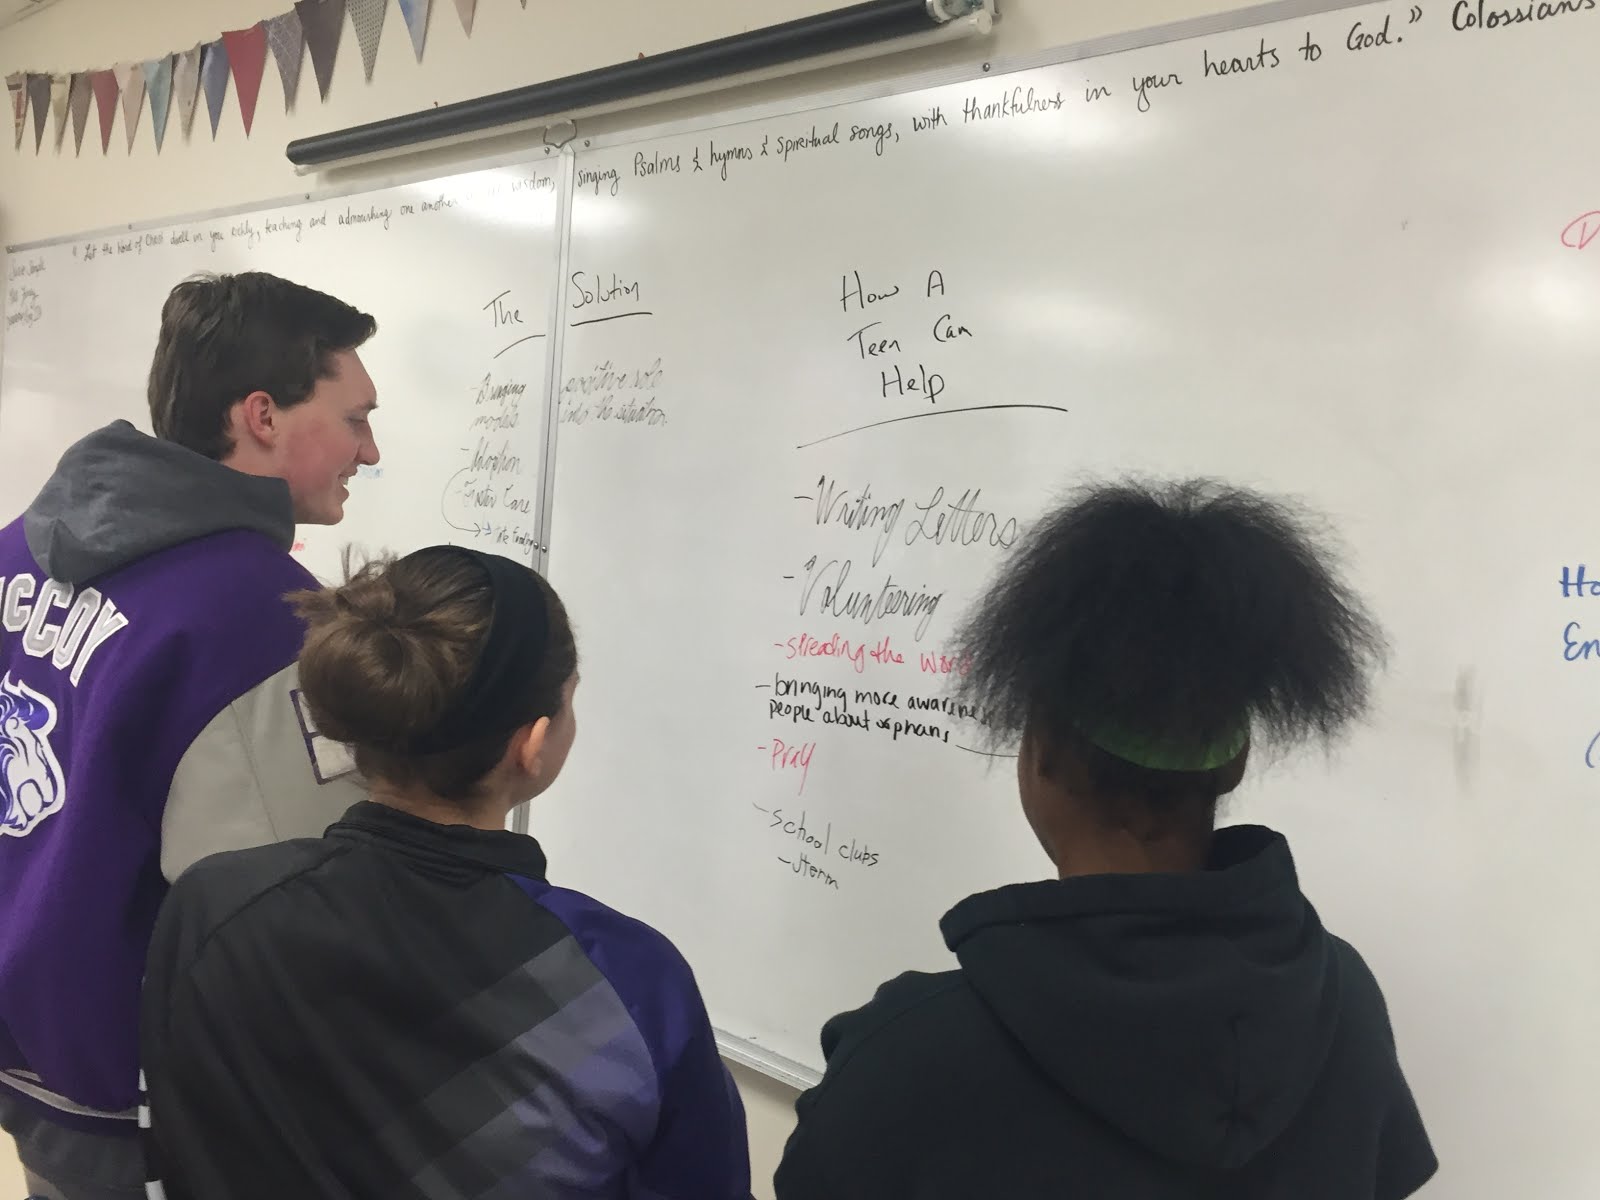 " Let the Word of Christ dwell in you richly, teaching and admonishing one another wisdom, singing Psalms & hymns & spiritual songs, with thankfulness in your hearts to God." Colossians
The Solution
- Bringing positive role
models into the situation.
- Adoption
- Foster Care
How A
Teen Can
Help
- Writing Letters
- Volunteering
- spreading the word
- bringing more awareness
people about orphans
- Pray
- school clubs
- Jterm
Ho
En
McCOY